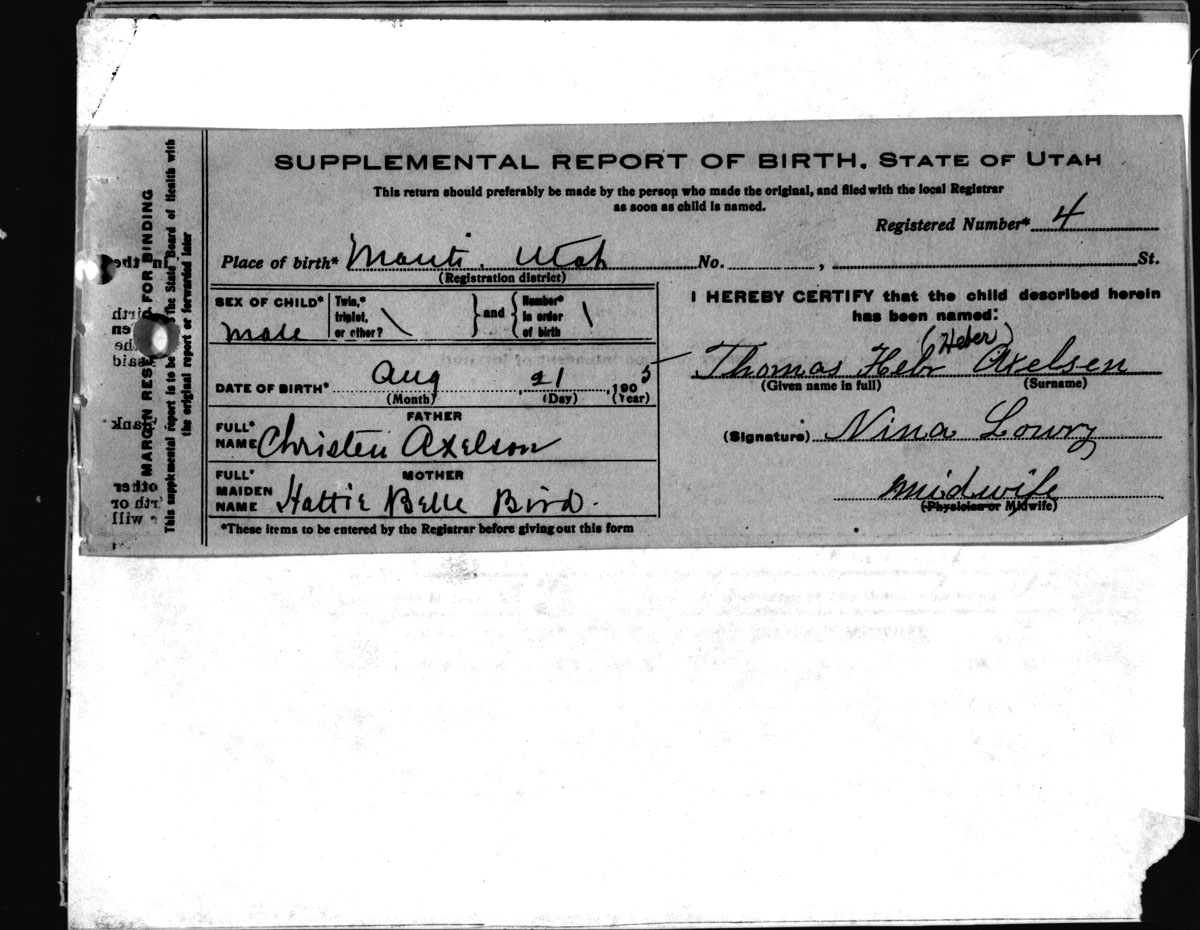 SUPPLEMENTAL REPORT OF BIRTH, STATE OF UTAH
This return should preferably be made by the person who made the original, and filed with the local Registrar
as soon as child is named.
Registered Number* 4
Place of birth* Manti, Utah No. , St.
(Registration district)
SEX OF CHILD*
male
Twin,*
triplet,
or other?
} and {
Number*
in order
of birth
DATE OF BIRTH* Aug 21, 1905
(Month) (Day) (Year)
FATHER
FULL*
NAME Christen Axelson
MOTHER
FULL*
MAIDEN
NAME Hattie Belle Bird.
*These items to be entered by the Registrar before giving out this form
I HEREBY CERTIFY that the child described herein
has been named:
(Heber)
Thomas Hebr Axelsen
(Given name in full) (Surname)
(Signature) Nina Lowry
Midwife
(Physician or Midwife)
MARGIN RESE FOR BINDING
This supplemental report is to be The State Board of Health with
the original report or forwarded later